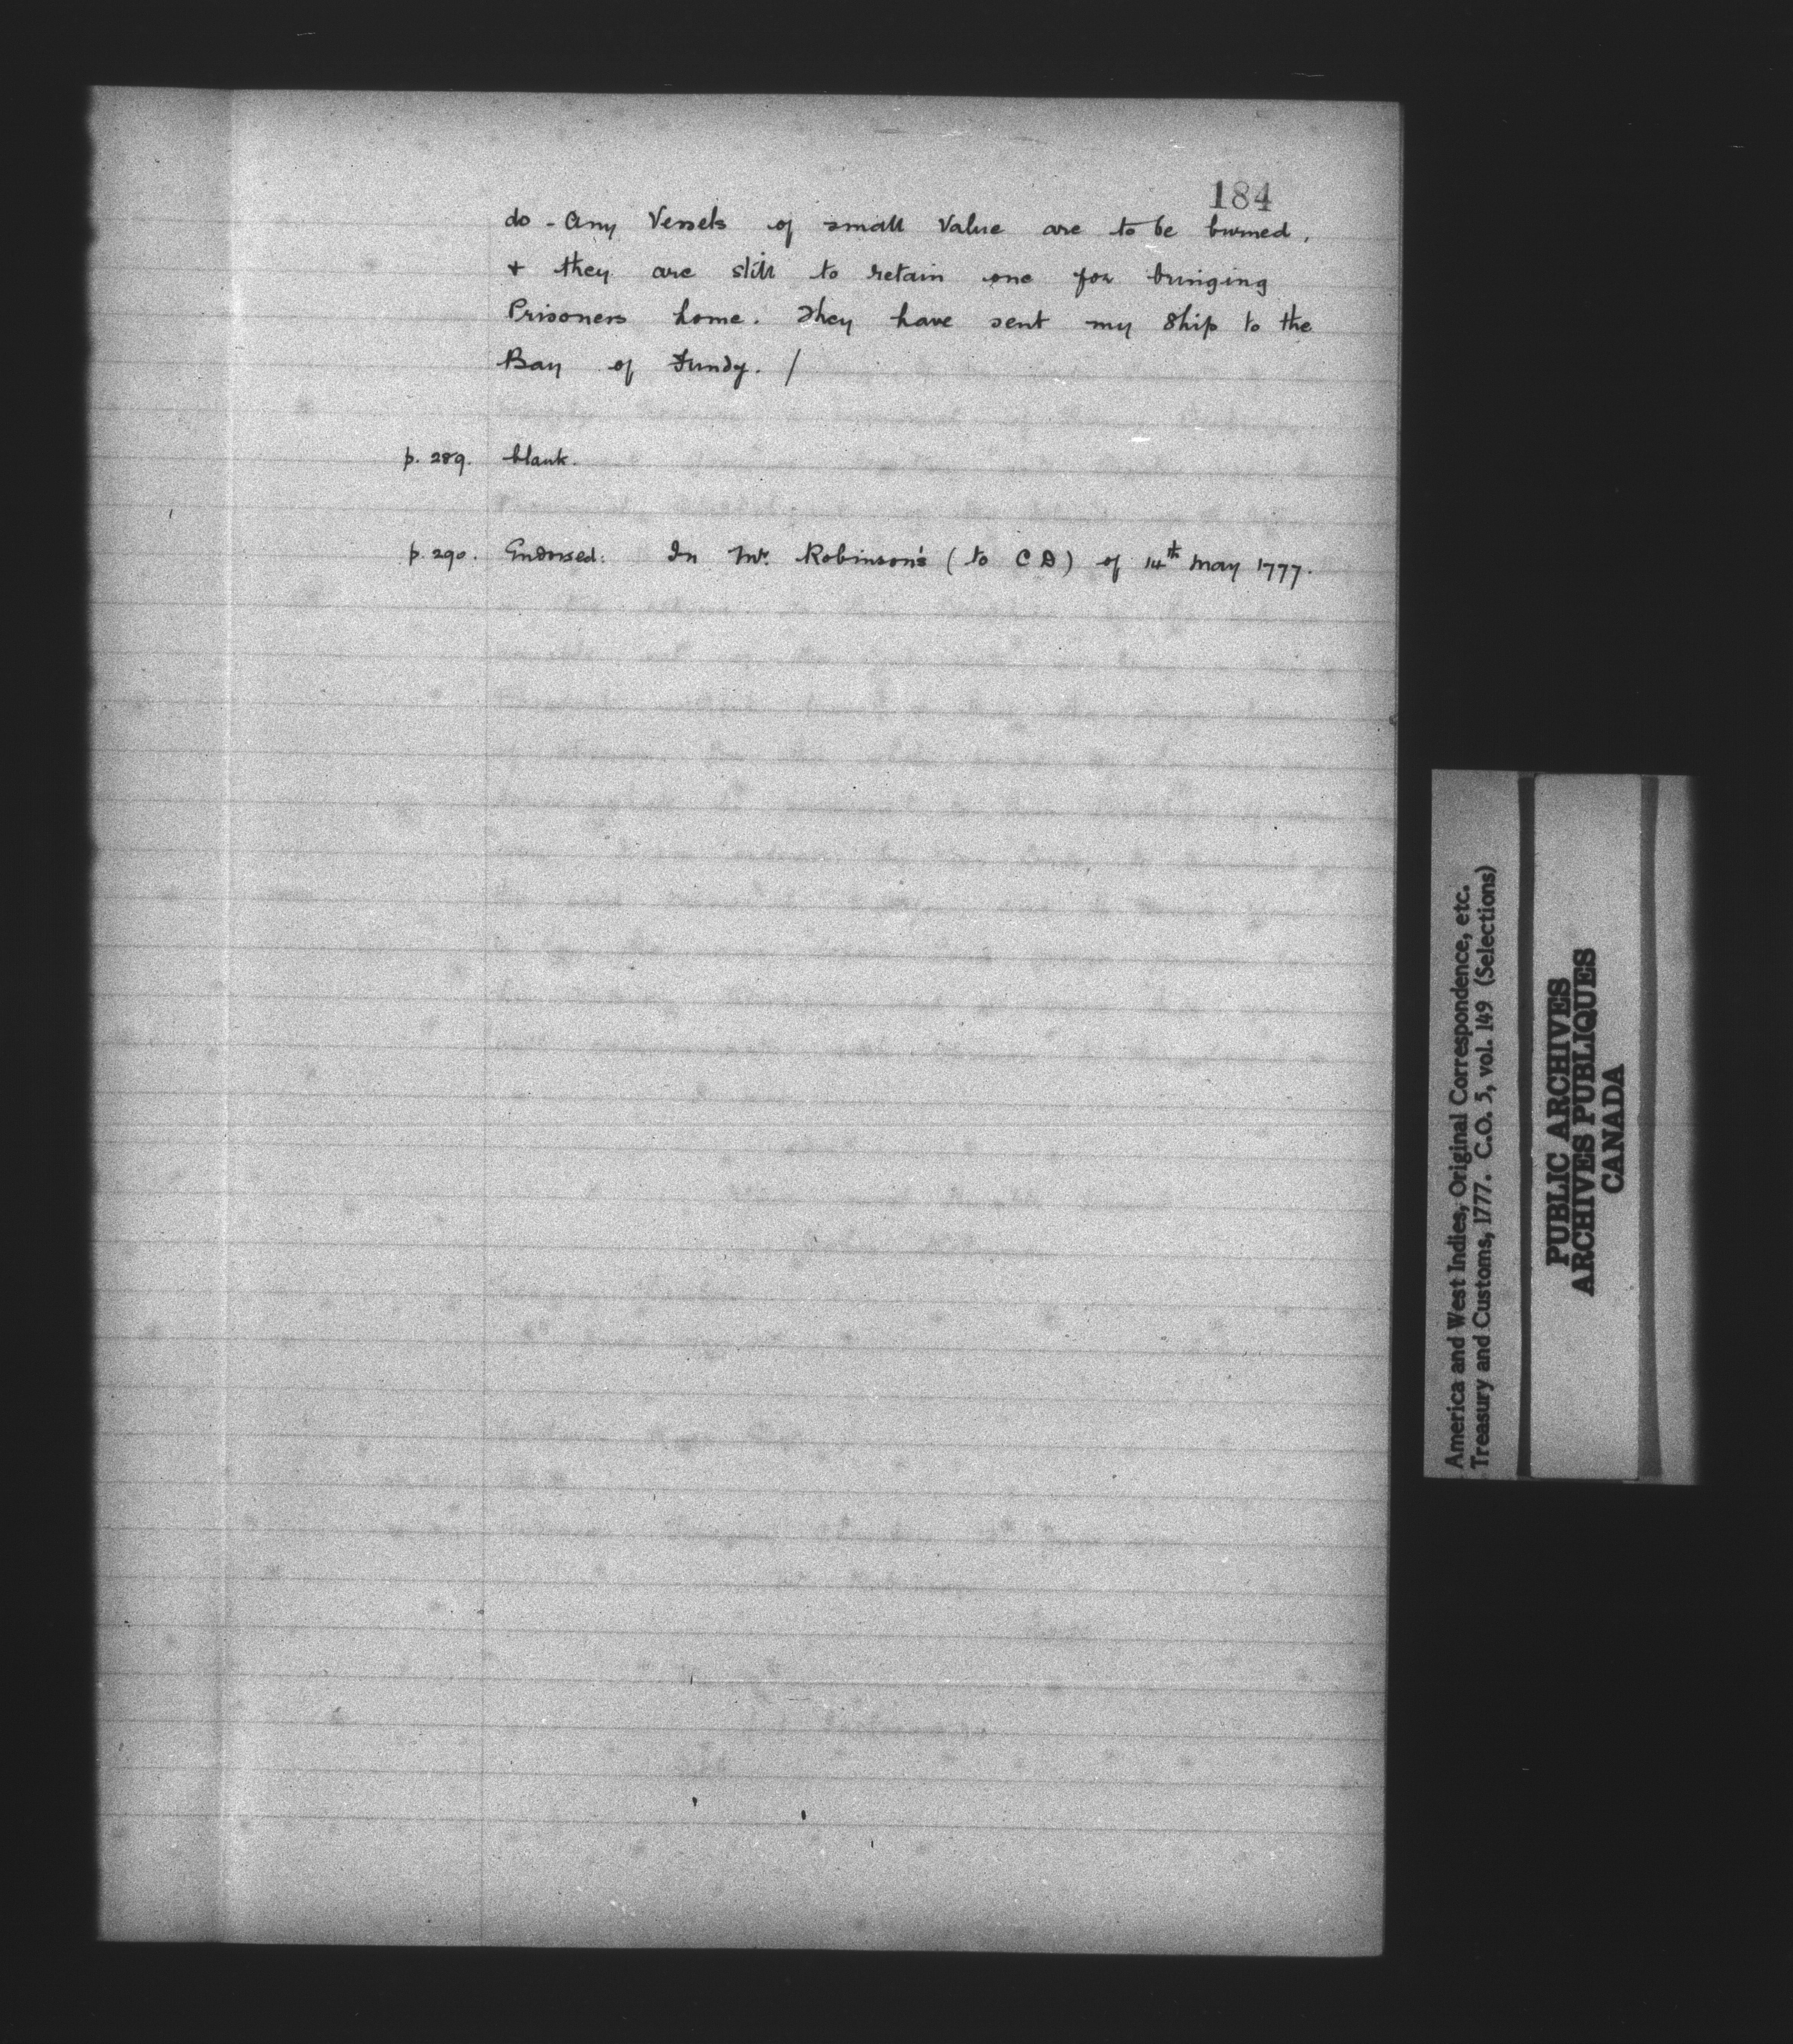 184
do - Any Vessels of small Value are to be burned,
+ they are still to retain one for bringing
Prisoners home. They have sent my Ship to the
Bay of Fundy. /
p. 289. blank.
p. 290. Endorsed: In Mr. Robinson's (to C D) of 14th May 1777.
America and West Indies, Original Correspondence, etc.
Treasury and Customs, 1777. C.O. 5, vol. 149 (Selections)
PUBLIC ARCHIVES
ARCHIVES PUBLIQUES
CANADA